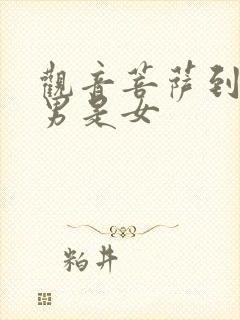 觀音菩薩到
男是女
粕井